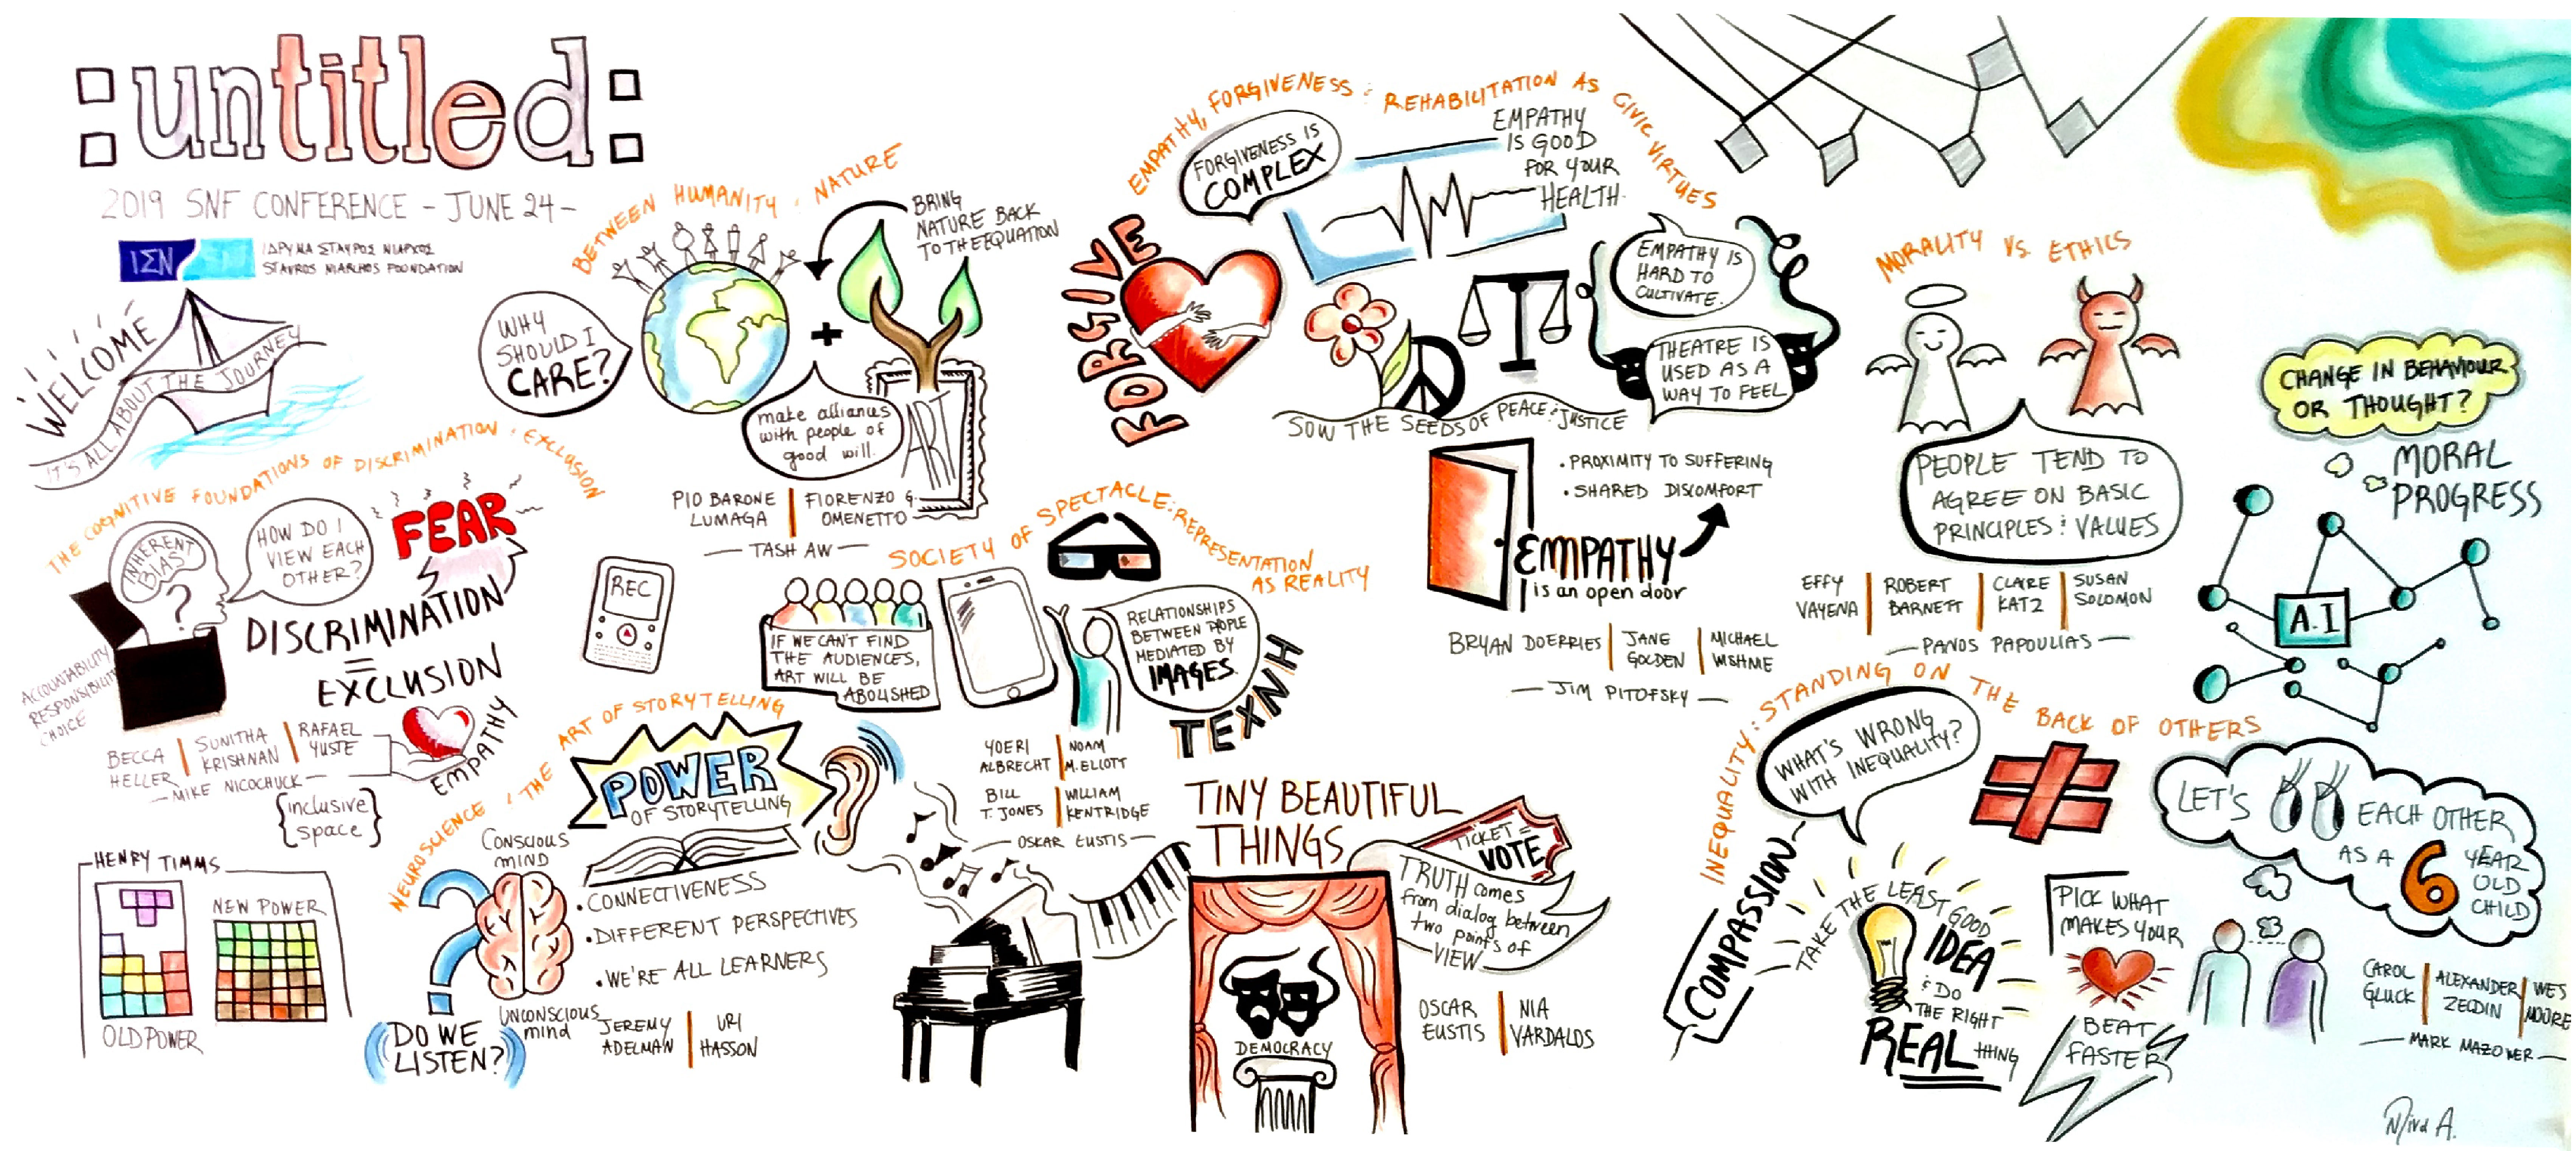 :untitled:
2019 SNF CONFERENCE - JUNE 24 -
ΙΣΝ
SNF
ΙΔΡΥΜΑ ΣΤΑΥΡΟΣ ΝΙΑΡΧΟΣ
STAVROS NIARCHOS FOUNDATION
WELCOME
IT'S ALL ABOUT THE JOURNEY
THE COGNITIVE FOUNDATIONS OF DISCRIMINATION : EXCLUSION
INHERENT
BIAS
?
HOW DO I
VIEW EACH
OTHER?
FEAR
DISCRIMINATION
=
EXCLUSION
ACCOUNTABILITY
RESPONSIBILITY
CHOICE
EMPATHY
BECCA
HELLER
SUNITHA
KRISHNAN
RAFAEL
YUSTE
MIKE NICOCHUCK
{inclusive
space}
HENRY TIMMS
OLD POWER
NEW POWER
BETWEEN HUMANITY : NATURE
WHY
SHOULD I
CARE?
BRING
NATURE BACK
TO THE EQUATION
+
make alliances
with people of
good will.
ART
PIO BARONE
LUMAGA
FIORENZO G.
OMENETTO
TASH AW
NEUROSCIENCE : THE ART OF STORYTELLING
POWER
OF STORYTELLING
CONSCIOUS
MIND
UNCONSCIOUS
mind
? DO WE
LISTEN?
• CONNECTIVENESS
• DIFFERENT PERSPECTIVES
• WE'RE ALL LEARNERS
JEREMY
ADELMAN
URI
HASSON
SOCIETY OF SPECTACLE: REPRESENTATION
AS REALITY
REC
IF WE CAN'T FIND
THE AUDIENCES,
ART WILL BE
ABOLISHED
RELATIONSHIPS
BETWEEN PEOPLE
MEDIATED BY
IMAGES.
TEXNH
YOERI
ALBRECHT
NOAM
M. ELCOTT
BILL
T. JONES
WILLIAM
KENTRIDGE
OSKAR EUSTIS
TINY BEAUTIFUL
THINGS
TICKET =
VOTE
TRUTH comes
from dialog between
two points of
VIEW
DEMOCRACY
OSCAR
EUSTIS
NIA
VARDALOS
EMPATHY, FORGIVENESS : REHABILITATION AS CIVIC VIRTUES
FORGIVENESS IS
COMPLEX
EMPATHY
IS GOOD
FOR YOUR
HEALTH.
FORGIVE
EMPATHY IS
HARD TO
CULTIVATE.
THEATRE IS
USED AS A
WAY TO FEEL
SOW THE SEEDS OF PEACE : JUSTICE
• PROXIMITY TO SUFFERING
• SHARED DISCOMFORT
EMPATHY
is an open door
BRYAN DOERRIES
JANE
GOLDEN
MICHAEL
WISHNIE
JIM PITOFSKY
MORALITY VS. ETHICS
PEOPLE TEND TO
AGREE ON BASIC
PRINCIPLES : VALUES
EFFY
VAYENA
ROBERT
BARNETT
CLAIRE
KATZ
SUSAN
SOLOMON
PANOS PAPOULIAS
CHANGE IN BEHAVIOUR
OR THOUGHT?
MORAL
PROGRESS
A.I
INEQUALITY: STANDING ON THE BACK OF OTHERS
WHAT'S WRONG
WITH INEQUALITY?
COMPASSION
TAKE THE LEAST GOOD
IDEA
: DO
THE RIGHT
REAL THING
PICK WHAT
MAKES YOUR
BEAT
FASTER
LET'S
EACH OTHER
AS A 6 YEAR
OLD
CHILD
CAROL
GLUCK
ALEXANDER
ZELDIN
WES
MOORE
MARK MAZOWER